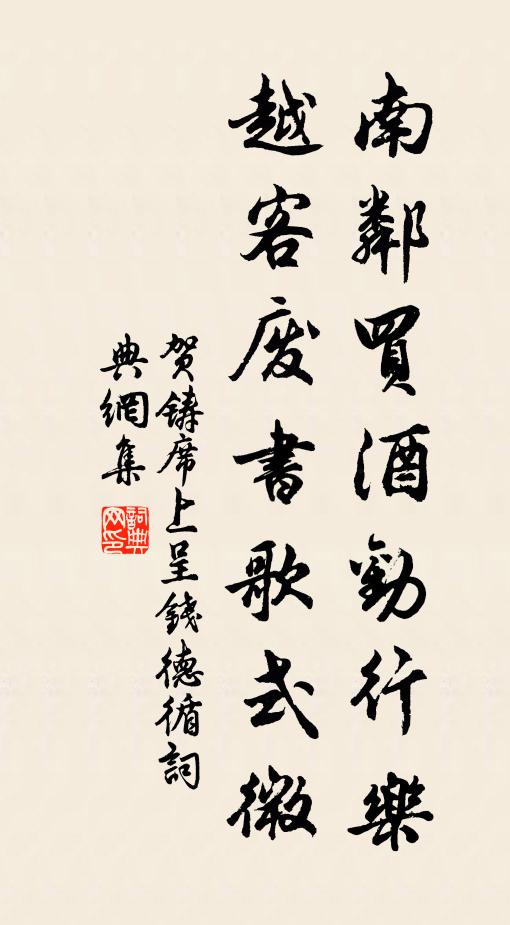 南鄰買酒勸行樂
越客废書歌式微
賀鑄席上呈錢德循詞
典網集
詞典网印